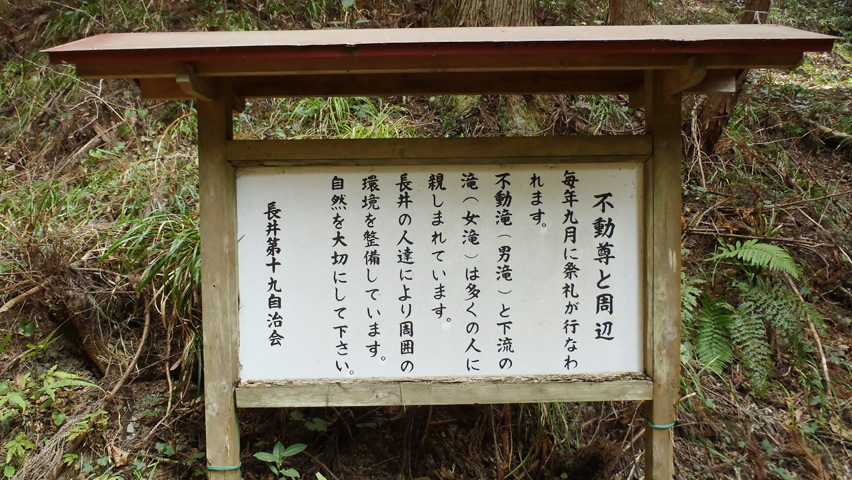 不動尊と周辺
毎年九月に祭礼が行なわ
れます。
不動滝(男滝)と下流の
滝(女滝)は多くの人に
親しまれています。
長井の人達により周囲の
環境を整備しています。
自然を大切にして下さい。
長井第十九自治会